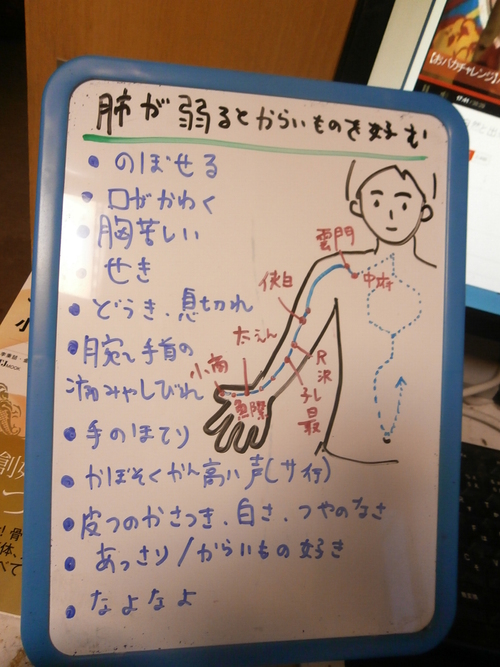 肺が弱るとからいものを好む
• のぼせる
• 口がかわく
• 胸苦しい
• せき
• どうき、息切れ
• 腕、手首の
痛みやしびれ
• 手のほてり
• かぼそくかん高い声(サ行)
• 皮つのかさつき、白さ、つやのなさ
• あっさり/からいもの好き
• なよなよ
雲門
中府
侠白
たいえん
尺沢
孔最
小商
魚際
【おバカチャレンジ】
MOOK
創
つ